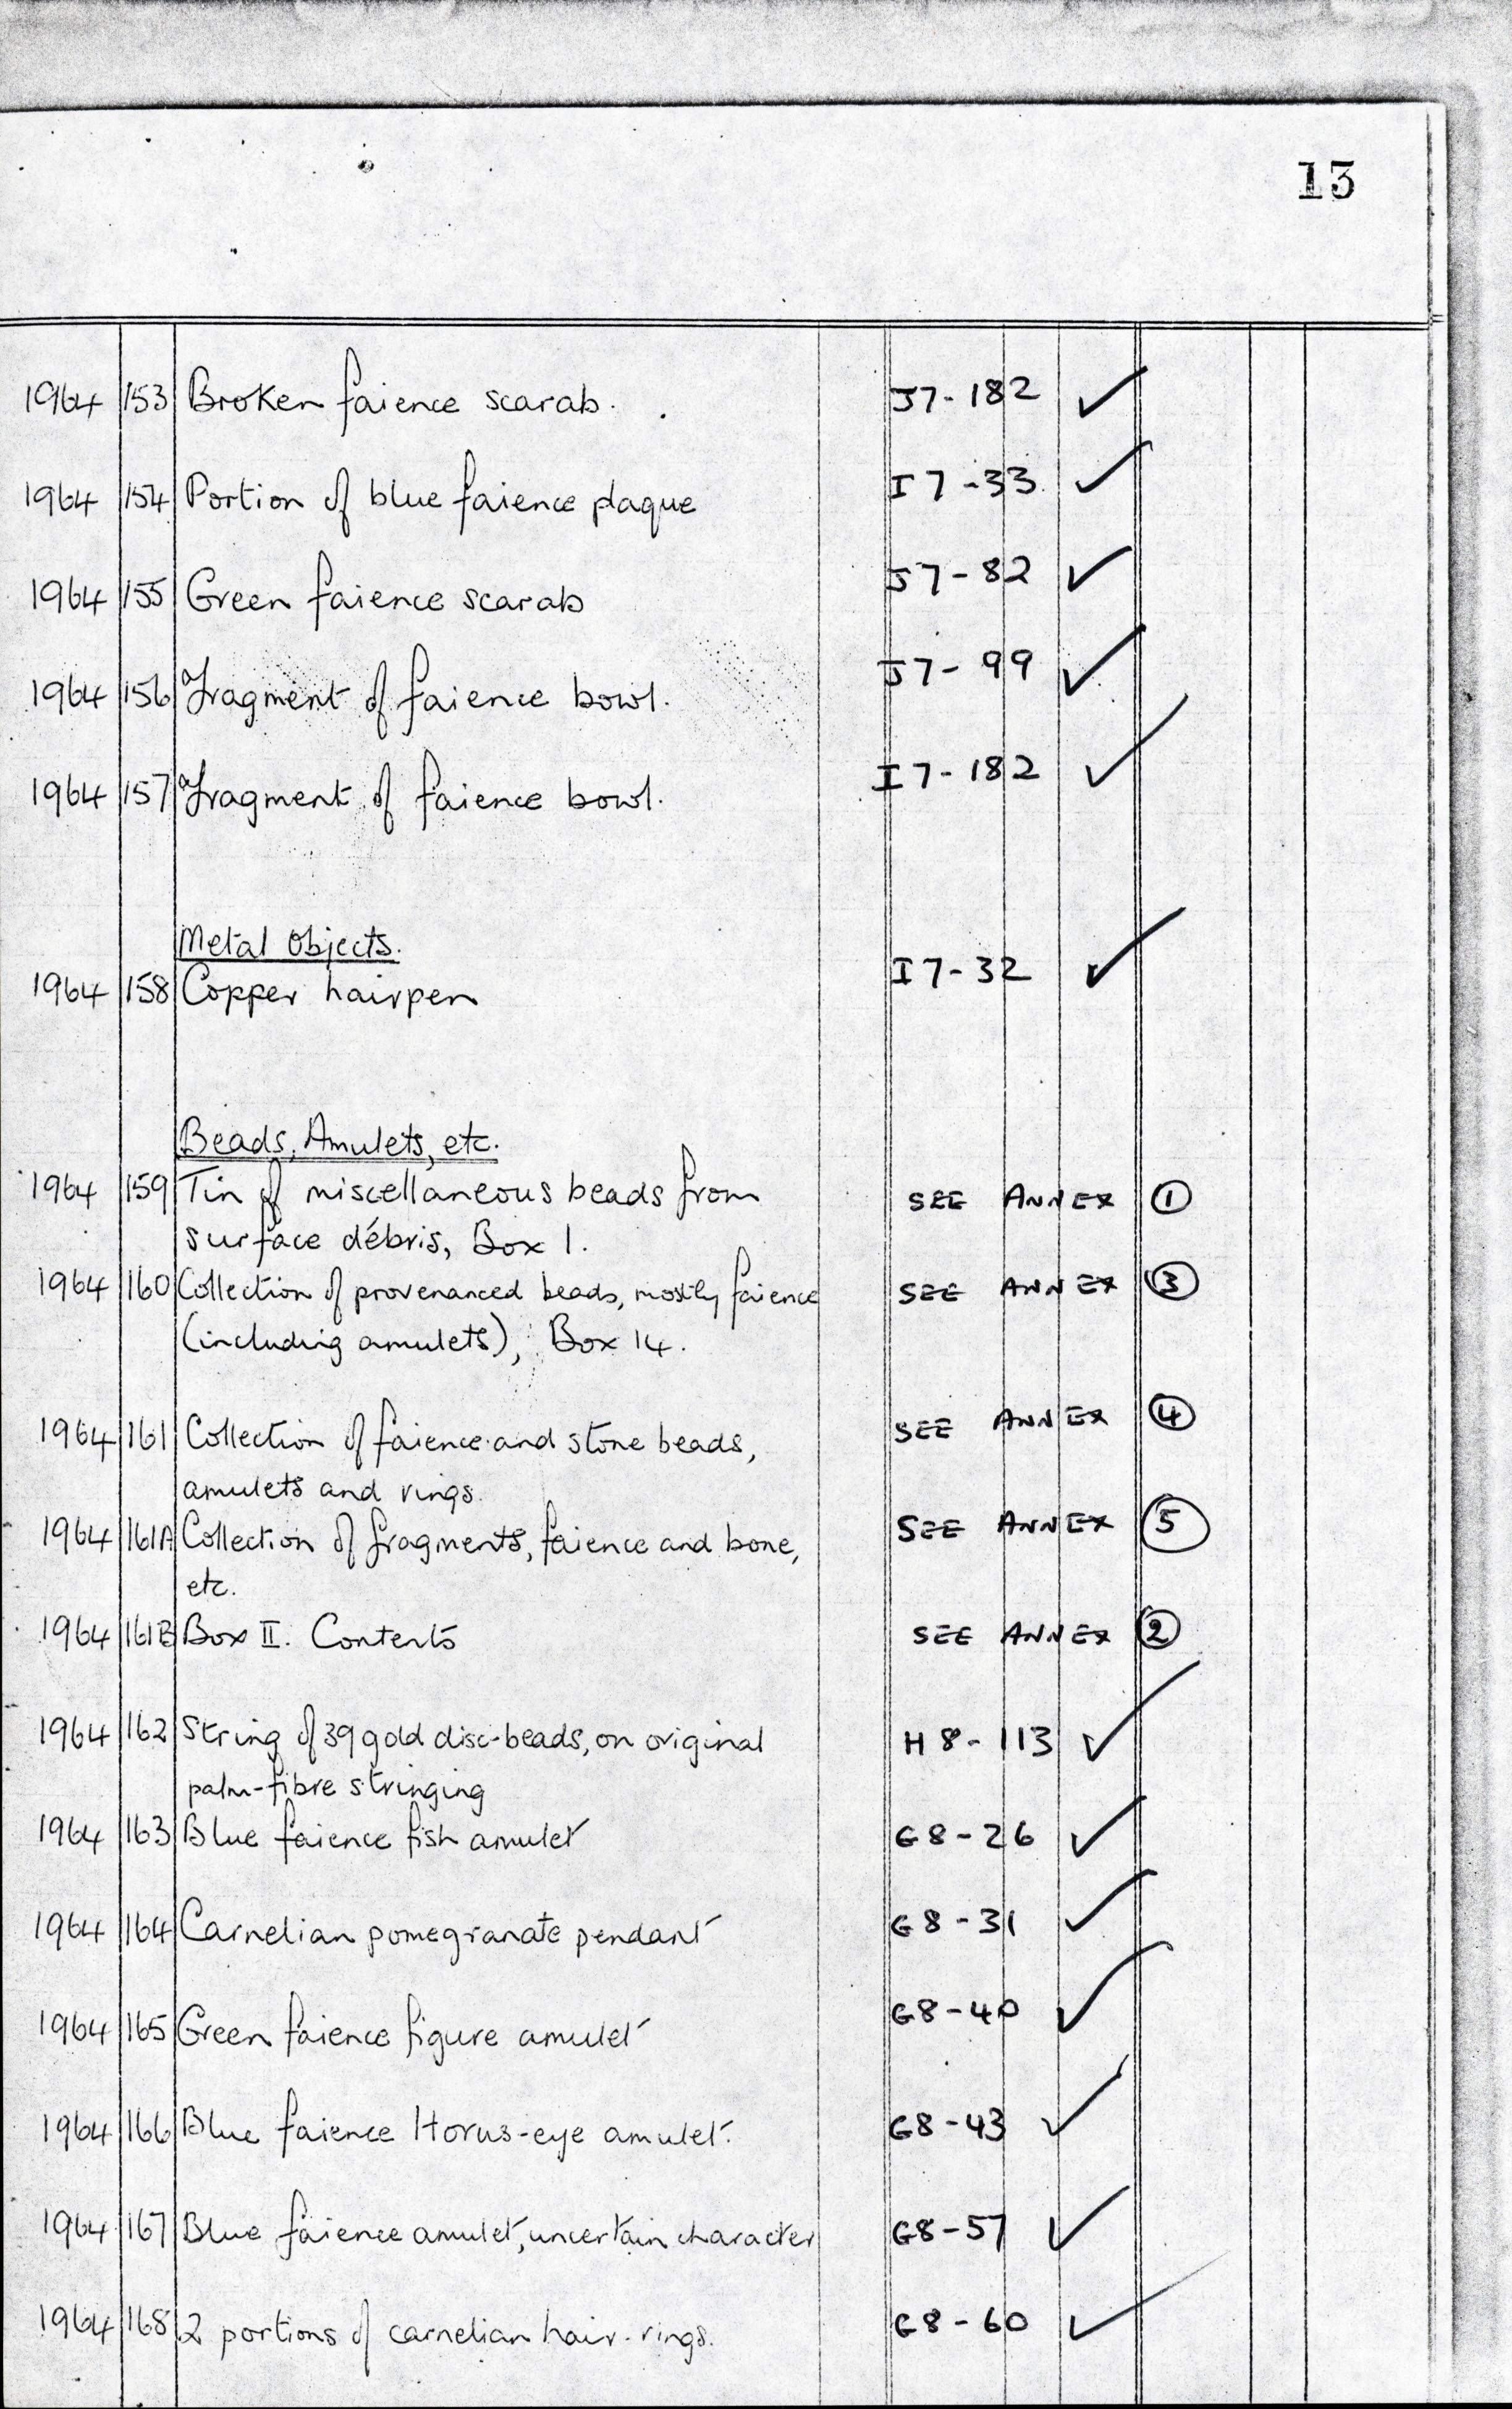 13
1964 153 Broken faience scarab. J7-182 ✓
1964 154 Portion of blue faience plaque I7-33 ✓
1964 155 Green faience scarab J7-82 ✓
1964 156 Fragment of faience bowl. J7-99 ✓
1964 157 Fragment of faience bowl. I7-182 ✓
Metal Objects.
1964 158 Copper hairpen I7-32 ✓
Beads, Amulets, etc.
1964 159 Tin of miscellaneous beads from SEE ANNEX ①
surface débris, Box 1.
1964 160 Collection of provenanced beads, mostly faience SEE ANNEX ③
(including amulets), Box 14.
1964 161 Collection of faience and stone beads, SEE ANNEX ④
amulets and rings.
1964 161A Collection of fragments, faience and bone, SEE ANNEX ⑤
etc.
1964 161B Box II. Contents SEE ANNEX ②
1964 162 String of 39 gold disc-beads, on original H8-113 ✓
palm-fibre stringing
1964 163 Blue faience fish amulet G8-26 ✓
1964 164 Carnelian pomegranate pendant G8-31 ✓
1964 165 Green faience figure amulet G8-40 ✓
1964 166 Blue faience Horus-eye amulet. G8-43 ✓
1964 167 Blue faience amulet, uncertain character G8-57 ✓
1964 168 2 portions of carnelian hair-rings. G8-60 ✓